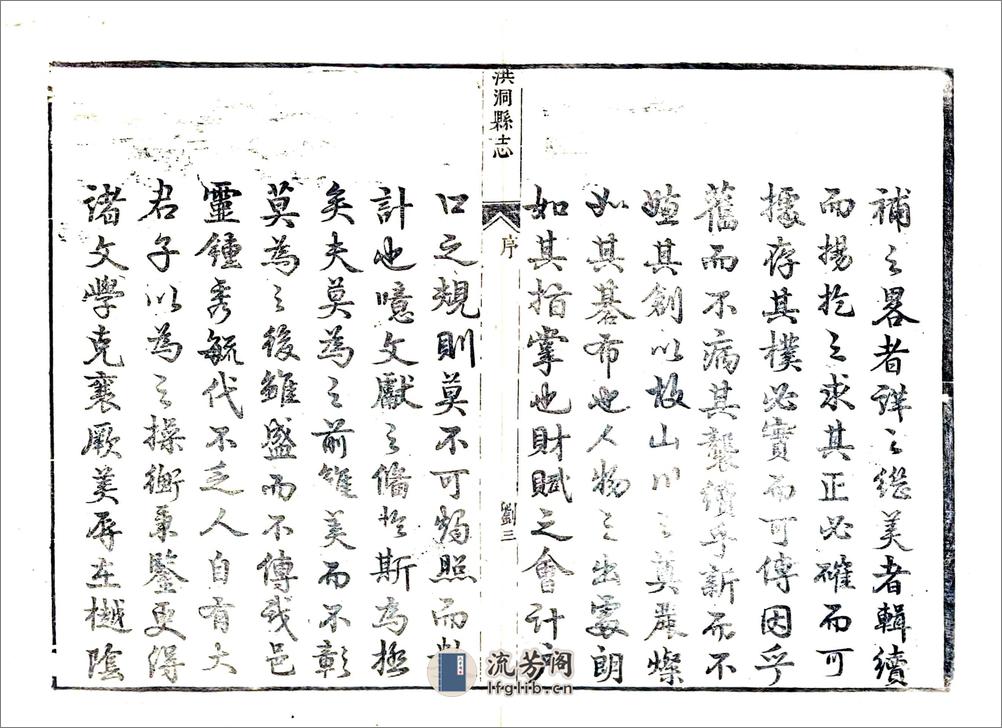 補之畧者詳之繼美者輯續
而揚扢之求其正必確而可
據存其樸必實而可傳因乎
舊而不病其襲續乎新而不
嫌其創以故山川之奠麗燦
如其碁布也人物之出處朗
洪洞縣志
序
劉三
如其指掌也財賦之會計戶
口之規則莫不可燭照而數
計也噫文獻之備於斯為極
矣夫莫為之前雖美而不彰
莫為之後雖盛而不傳我邑
靈鍾秀毓代不乏人自有大
君子以為之操衡秉鑒更得
諸文學克襄厥美辱在樾陰
流芳閣
lfglib.cn